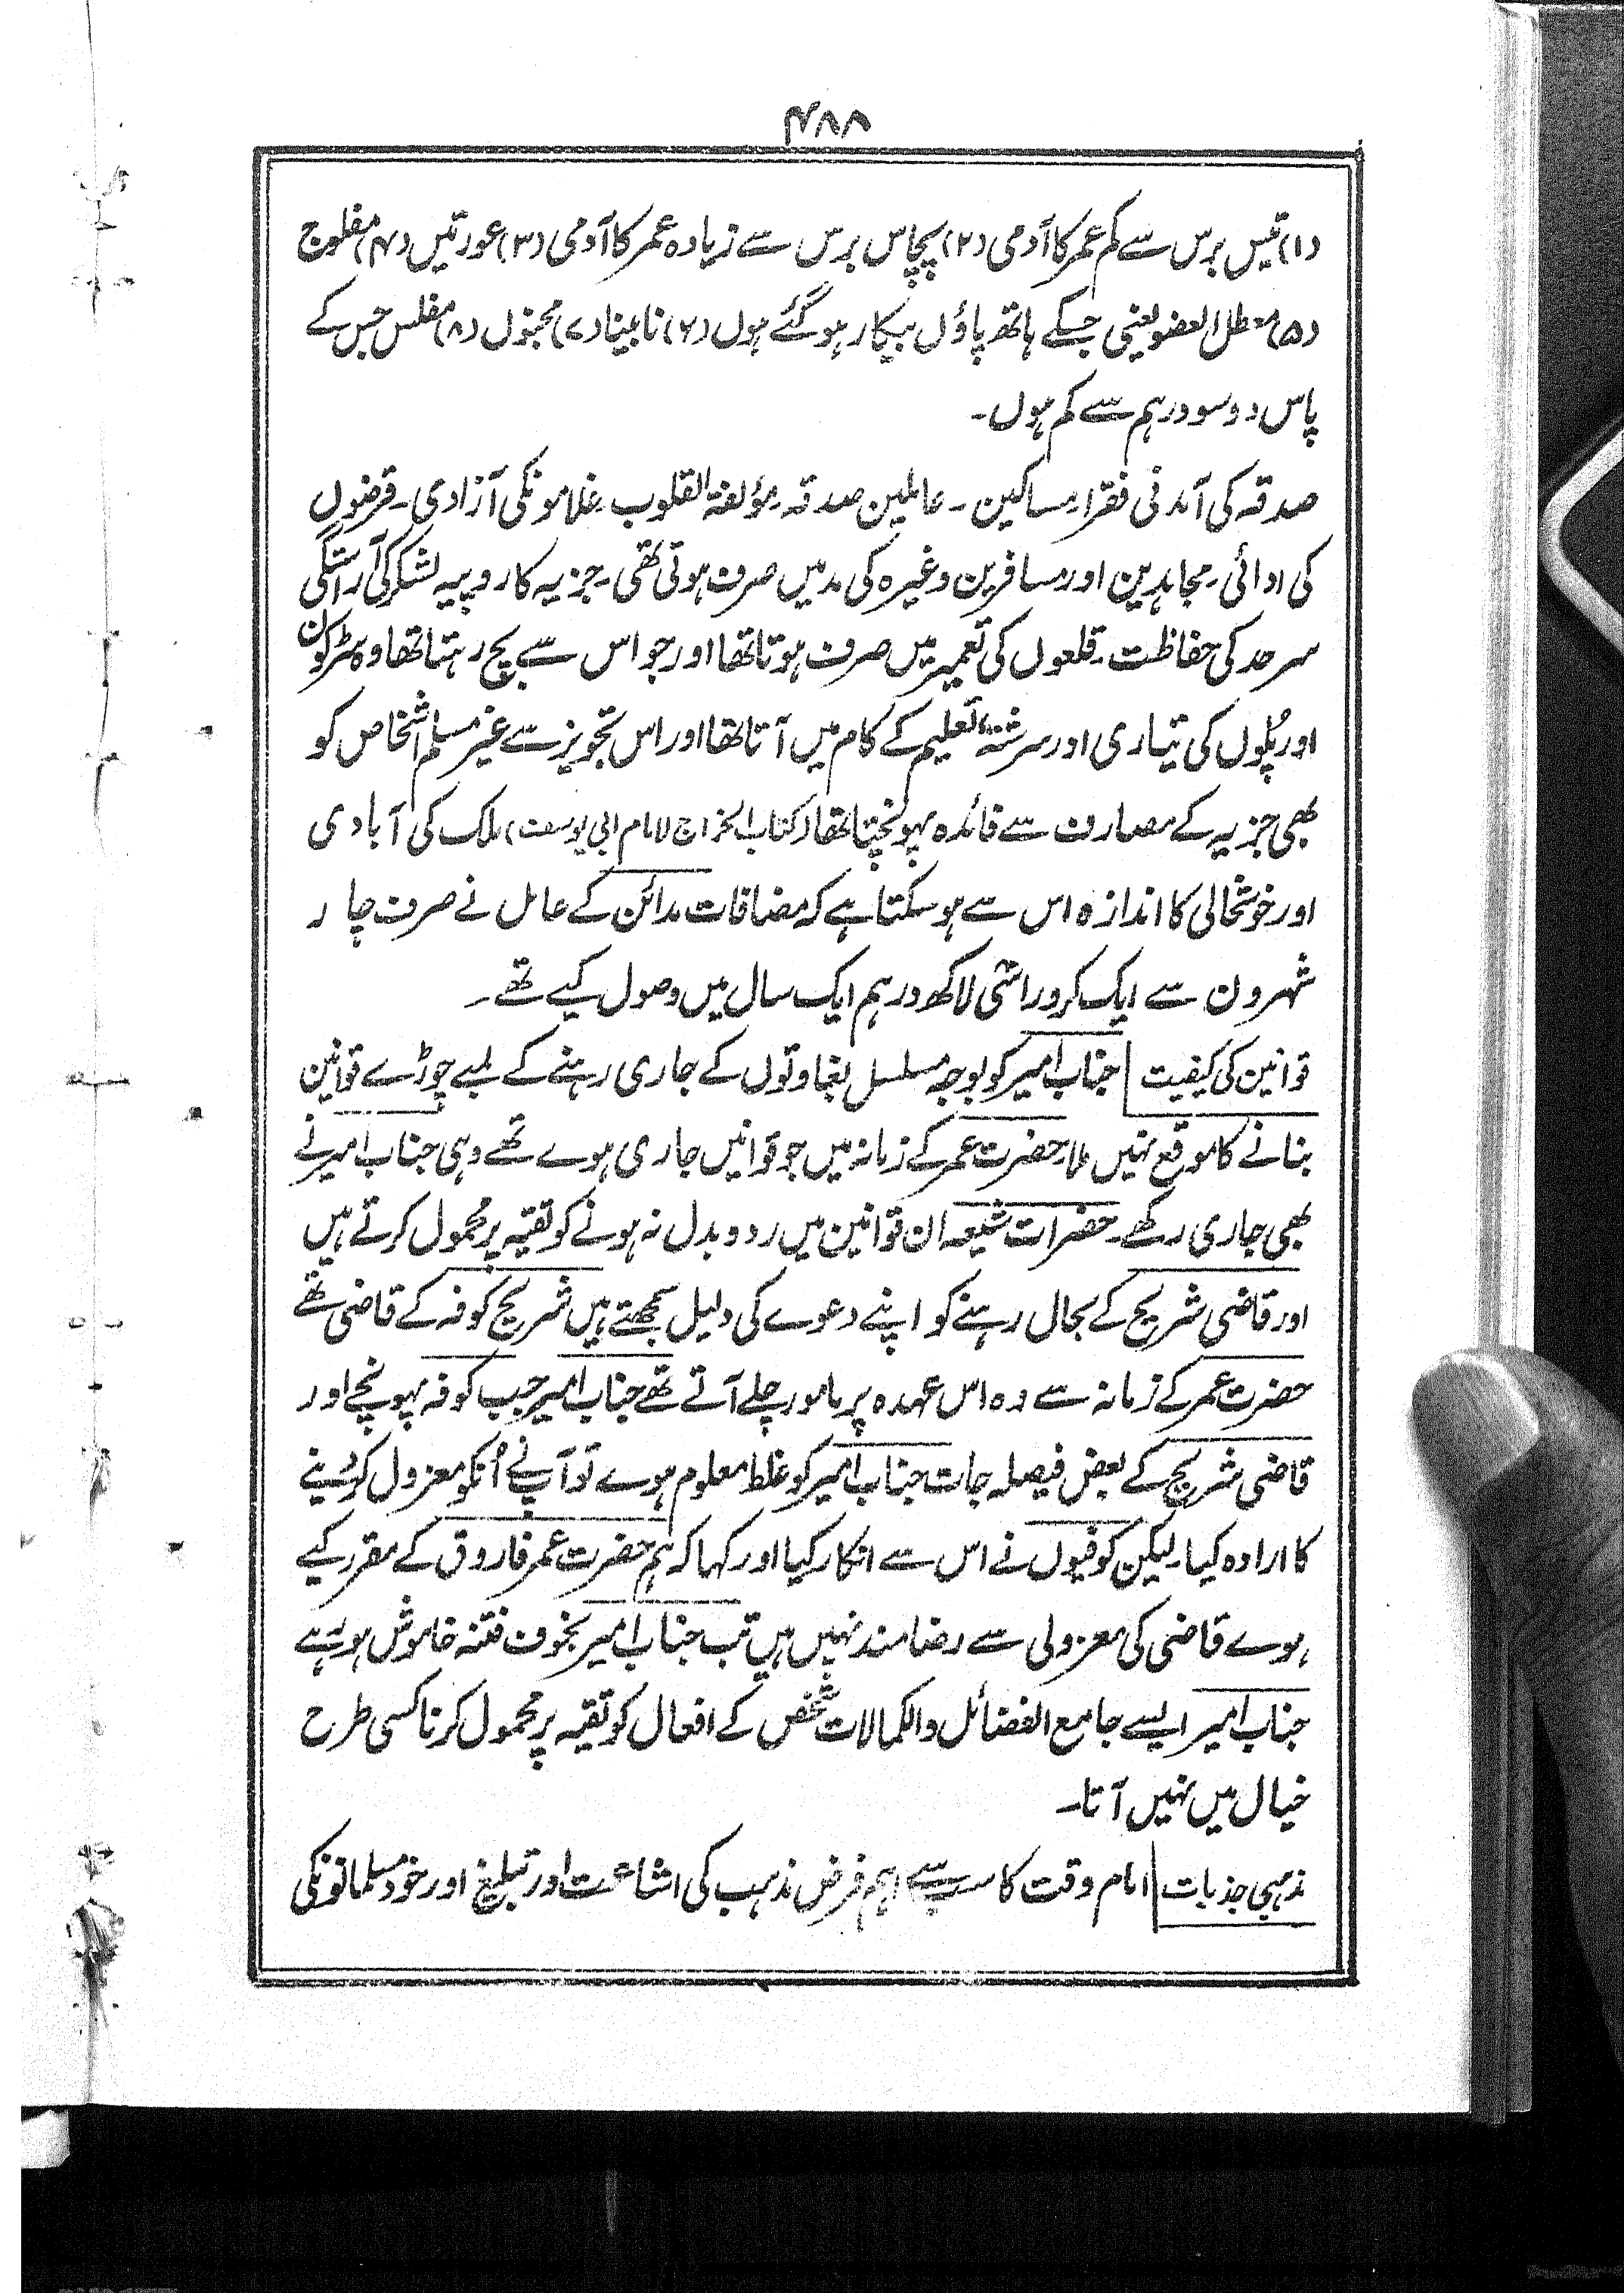 ۴۸۸
(۱) تیس برس سے کم عمر کا آدمی (۲) پچاس برس سے زیادہ عمر کا آدمی (۳) عورتیں (۴) مفلوج
(۵) معطل العضو یعنی جسکے ہاتھ پاؤں بیکار ہو گئے ہوں (۶) نابینا (۷) مجنوں (۸) مفلس جس کے
پاس دو سو درہم سے کم ہوں۔
صدقہ کی آمدنی فقرا۔ مساکین۔ عاملین صدقہ۔ مؤلفۃ القلوب۔ غلامونکی آزادی۔ قرضوں
کی ادائی۔ مجاہدین اور مسافرین وغیرہ کی مد میں صرف ہوتی تھی۔ جزیہ کا روپیہ لشکر کی آراستگی
سرحد کی حفاظت۔ قلعوں کی تعمیر میں صرف ہوتا تھا اور جو اس سے بچ رہتا تھا وہ سڑکوں
اور پُلوں کی تیاری اور سرشتۂ تعلیم کے کام میں آتا تھا اور اس تجویز سے غیر مسلم اشخاص کو
بھی جزیہ کے مصارف سے فائدہ پہونچتا تھا (کتاب الخراج لامام ابی یوسف) ملک کی آبادی
اور خوشحالی کا اندازہ اس سے ہو سکتا ہے کہ مضافات مدائن کے عامل نے صرف چار
شہرون سے ایک کرور اسّی لاکھ درہم ایک سال میں وصول کیے تھے۔
قوانین کی کیفیت | جناب امیر کو بوجہ مسلسل بغاوتوں کے جاری رہنے کے لمبے چوڑے قوانین
بنانے کا موقع نہیں ملا۔ حضرت عمر کے زمانہ میں جو قوانیں جاری ہوے تھے وہی جناب امیر نے
بھی جاری رکھے۔ حضرات شیعہ ان قوانین میں ردو بدل نہ ہونے کو تقیہ پر محمول کرتے ہیں
اور قاضی شریح کے بحال رہنے کو اپنے دعوے کی دلیل سمجھتے ہیں شریح کوفہ کے قاضی تھے
حضرت عمر کے زمانہ سے وہ اس عہدہ پر مامور چلے آتے تھے جناب امیر جب کوفہ پہونچے اور
قاضی شریح کے بعض فیصلہ جات جناب امیر کو غلط معلوم ہوے تو آپ نے اُنکو معزول کردینے
کا ارادہ کیا۔ لیکن کوفیوں نے اس سے انکار کیا اور کہا کہ ہم حضرت عمر فاروق کے مقرر کیے
ہوے قاضی کی معزولی سے رضامند نہیں ہیں تب جناب امیر بخوف فتنہ خاموش ہو رہے
جناب امیر ایسے جامع الفضائل والکمالات شخص کے افعال کو تقیہ پر محمول کرنا کسی طرح
خیال میں نہیں آتا۔
مذہبی جذبات | امام وقت کا سب سے اہم فرض مذہب کی اشاعت اور تبلیغ اور خود مسلمانونکی